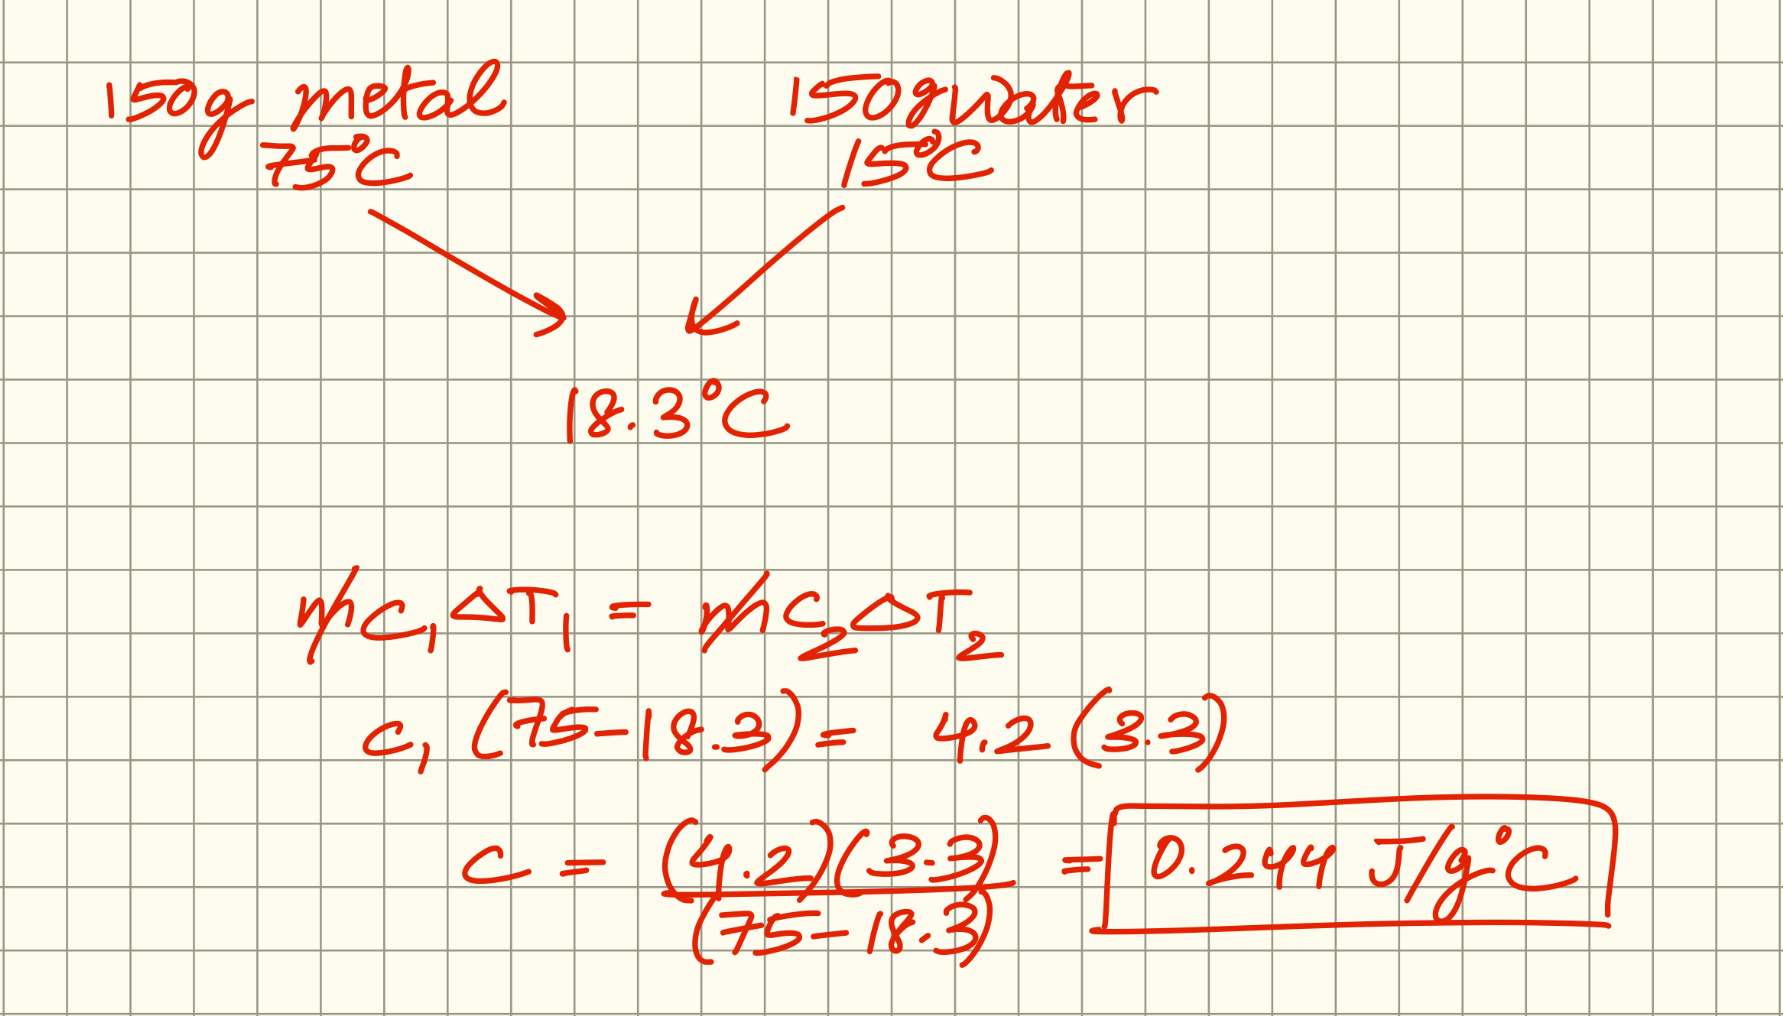 150g metal 150g water
75°C 15°C
18.3°C
mC₁ΔT₁ = mC₂ΔT₂
C₁ (75-18.3) = 4.2 (3.3)
C = (4.2)(3.3) / (75-18.3) = 0.244 J/g°C